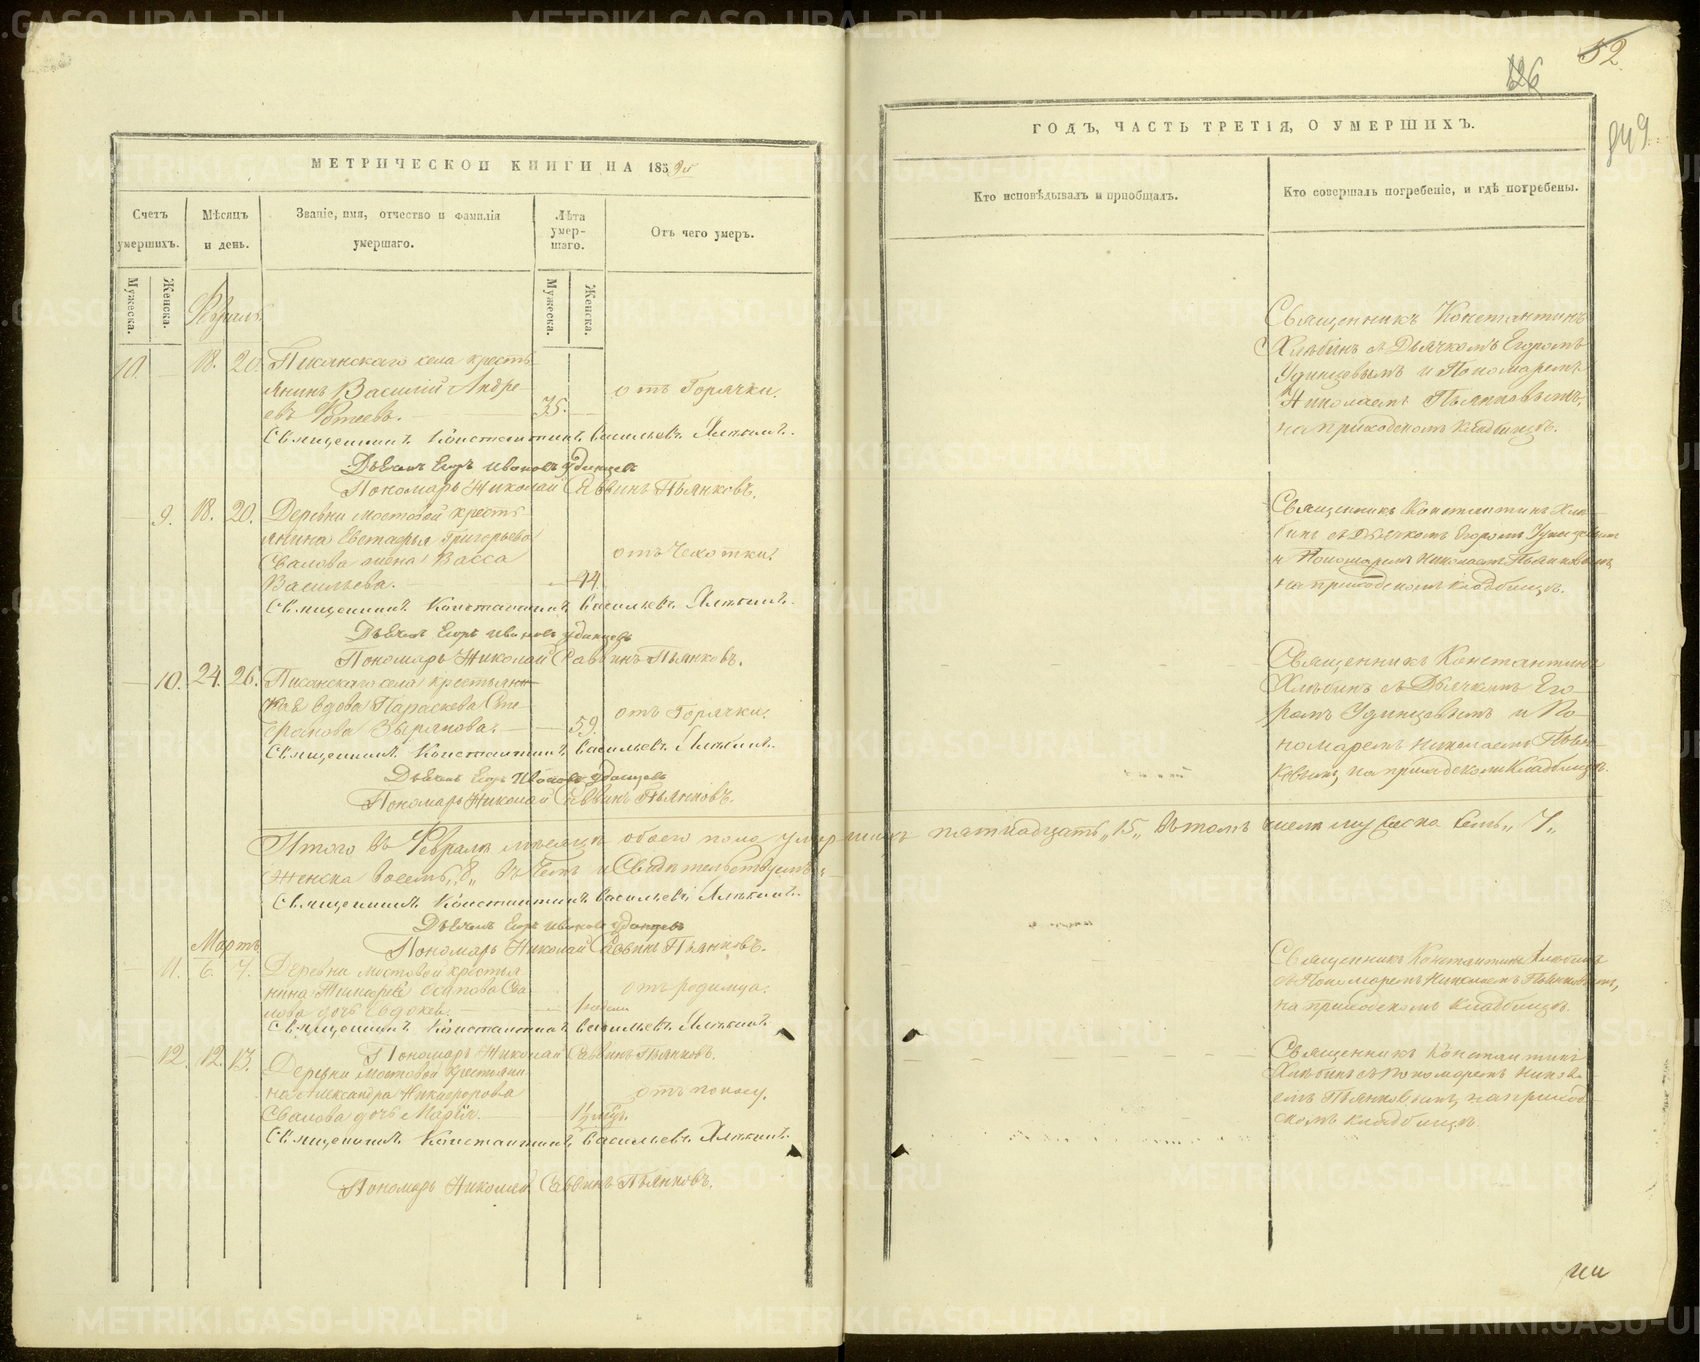 МЕТРИЧЕСКОЙ КНИГИ НА 1859й
Счетъ умершихъ.
Мѣсяцъ и день.
Званіе, имя, отчество и фамилія умершаго.
Лѣта умер-
шаго.
Отъ чего умеръ.
Мужеска.
Женска.
Мужеска.
Женска.
Февраль.
10. 18. 20. Писанскаго села кресть-
янинъ Василій Андре-
евъ 35. отъ Горячки.
Священникъ Константинъ Васильевъ Хлѣбинъ.
Дьячекъ Егоръ Ивановъ Удинцевъ
Пономарь Николай Саввинъ Пьянковъ.
9. 18. 20. Деревни Мостовой кресть-
янина Евстафья Григорьева
Свалова жена Васса
Васильева. 44. отъ Чехотки.
Священникъ Константинъ Васильевъ Хлѣбинъ.
Дьячекъ Егоръ Ивановъ Удинцевъ
Пономарь Николай Саввинъ Пьянковъ.
10. 24. 26. Писанскаго села крестьян-
ская вдова Параскева Сте-
Зырянова. 59. отъ Горячки.
Священникъ Константинъ Васильевъ Хлѣбинъ.
Дьячекъ Егоръ Ивановъ Удинцевъ
Пономарь Николай Саввинъ Пьянковъ.
Итого въ Февралѣ мѣсяцѣ обоего пола умершихъ пятнадцать „15„ въ томъ числѣ мужеска семь „7„
женска восемь „8„ въ чемъ и Свидѣтельствуемъ:
Священникъ Константинъ Васильевъ Хлѣбинъ.
Дьячекъ Егоръ Ивановъ Удинцевъ
Пономарь Николай Саввинъ Пьянковъ.
Мартъ
11. 6. 7. Деревни Мостовой крестья
нина Осипова Сва-
лова дочь отъ родимца.
Священникъ Константинъ Васильевъ Хлѣбинъ.
Пономарь Николай Саввинъ Пьянковъ.
12. 12. 13. Деревни Мостовой крестьяни-
на Александра Никифорова
Свалова дочь Марія. отъ поносу.
Священникъ Константинъ Васильевъ Хлѣбинъ.
Пономарь Николай Саввинъ Пьянковъ.
52
126
849
ГОДЪ, ЧАСТЬ ТРЕТІЯ, О УМЕРШИХЪ.
Кто исповѣдывалъ и пріобщалъ.
Кто совершалъ погребеніе, и гдѣ погребены.
Священникъ Константинъ
Хлѣбинъ съ Дьячкомъ Егоромъ
Удинцевымъ и Пономаремъ
Николаемъ Пьянковымъ,
на приходскомъ кладбищѣ.
Священникъ Константинъ Хлѣ-
бинъ съ Дьячкомъ Егоромъ Удинцевымъ
и Пономаремъ Николаемъ Пьянковымъ
на приходскомъ кладбищѣ.
Священникъ Константинъ
Хлѣбинъ съ Дьячкомъ Его-
ромъ Удинцевымъ и По-
номаремъ Николаемъ Пьян-
ковымъ, на приходскомъ кладбищѣ.
Священникъ Константинъ Хлѣбинъ
съ Пономаремъ Николаемъ Пьянковымъ,
на приходскомъ кладбищѣ.
Священникъ Константинъ
Хлѣбинъ съ Пономаремъ Никола-
емъ Пьянковымъ, на приход-
скомъ кладбищѣ.
METRIKI.GASO-URAL.RU